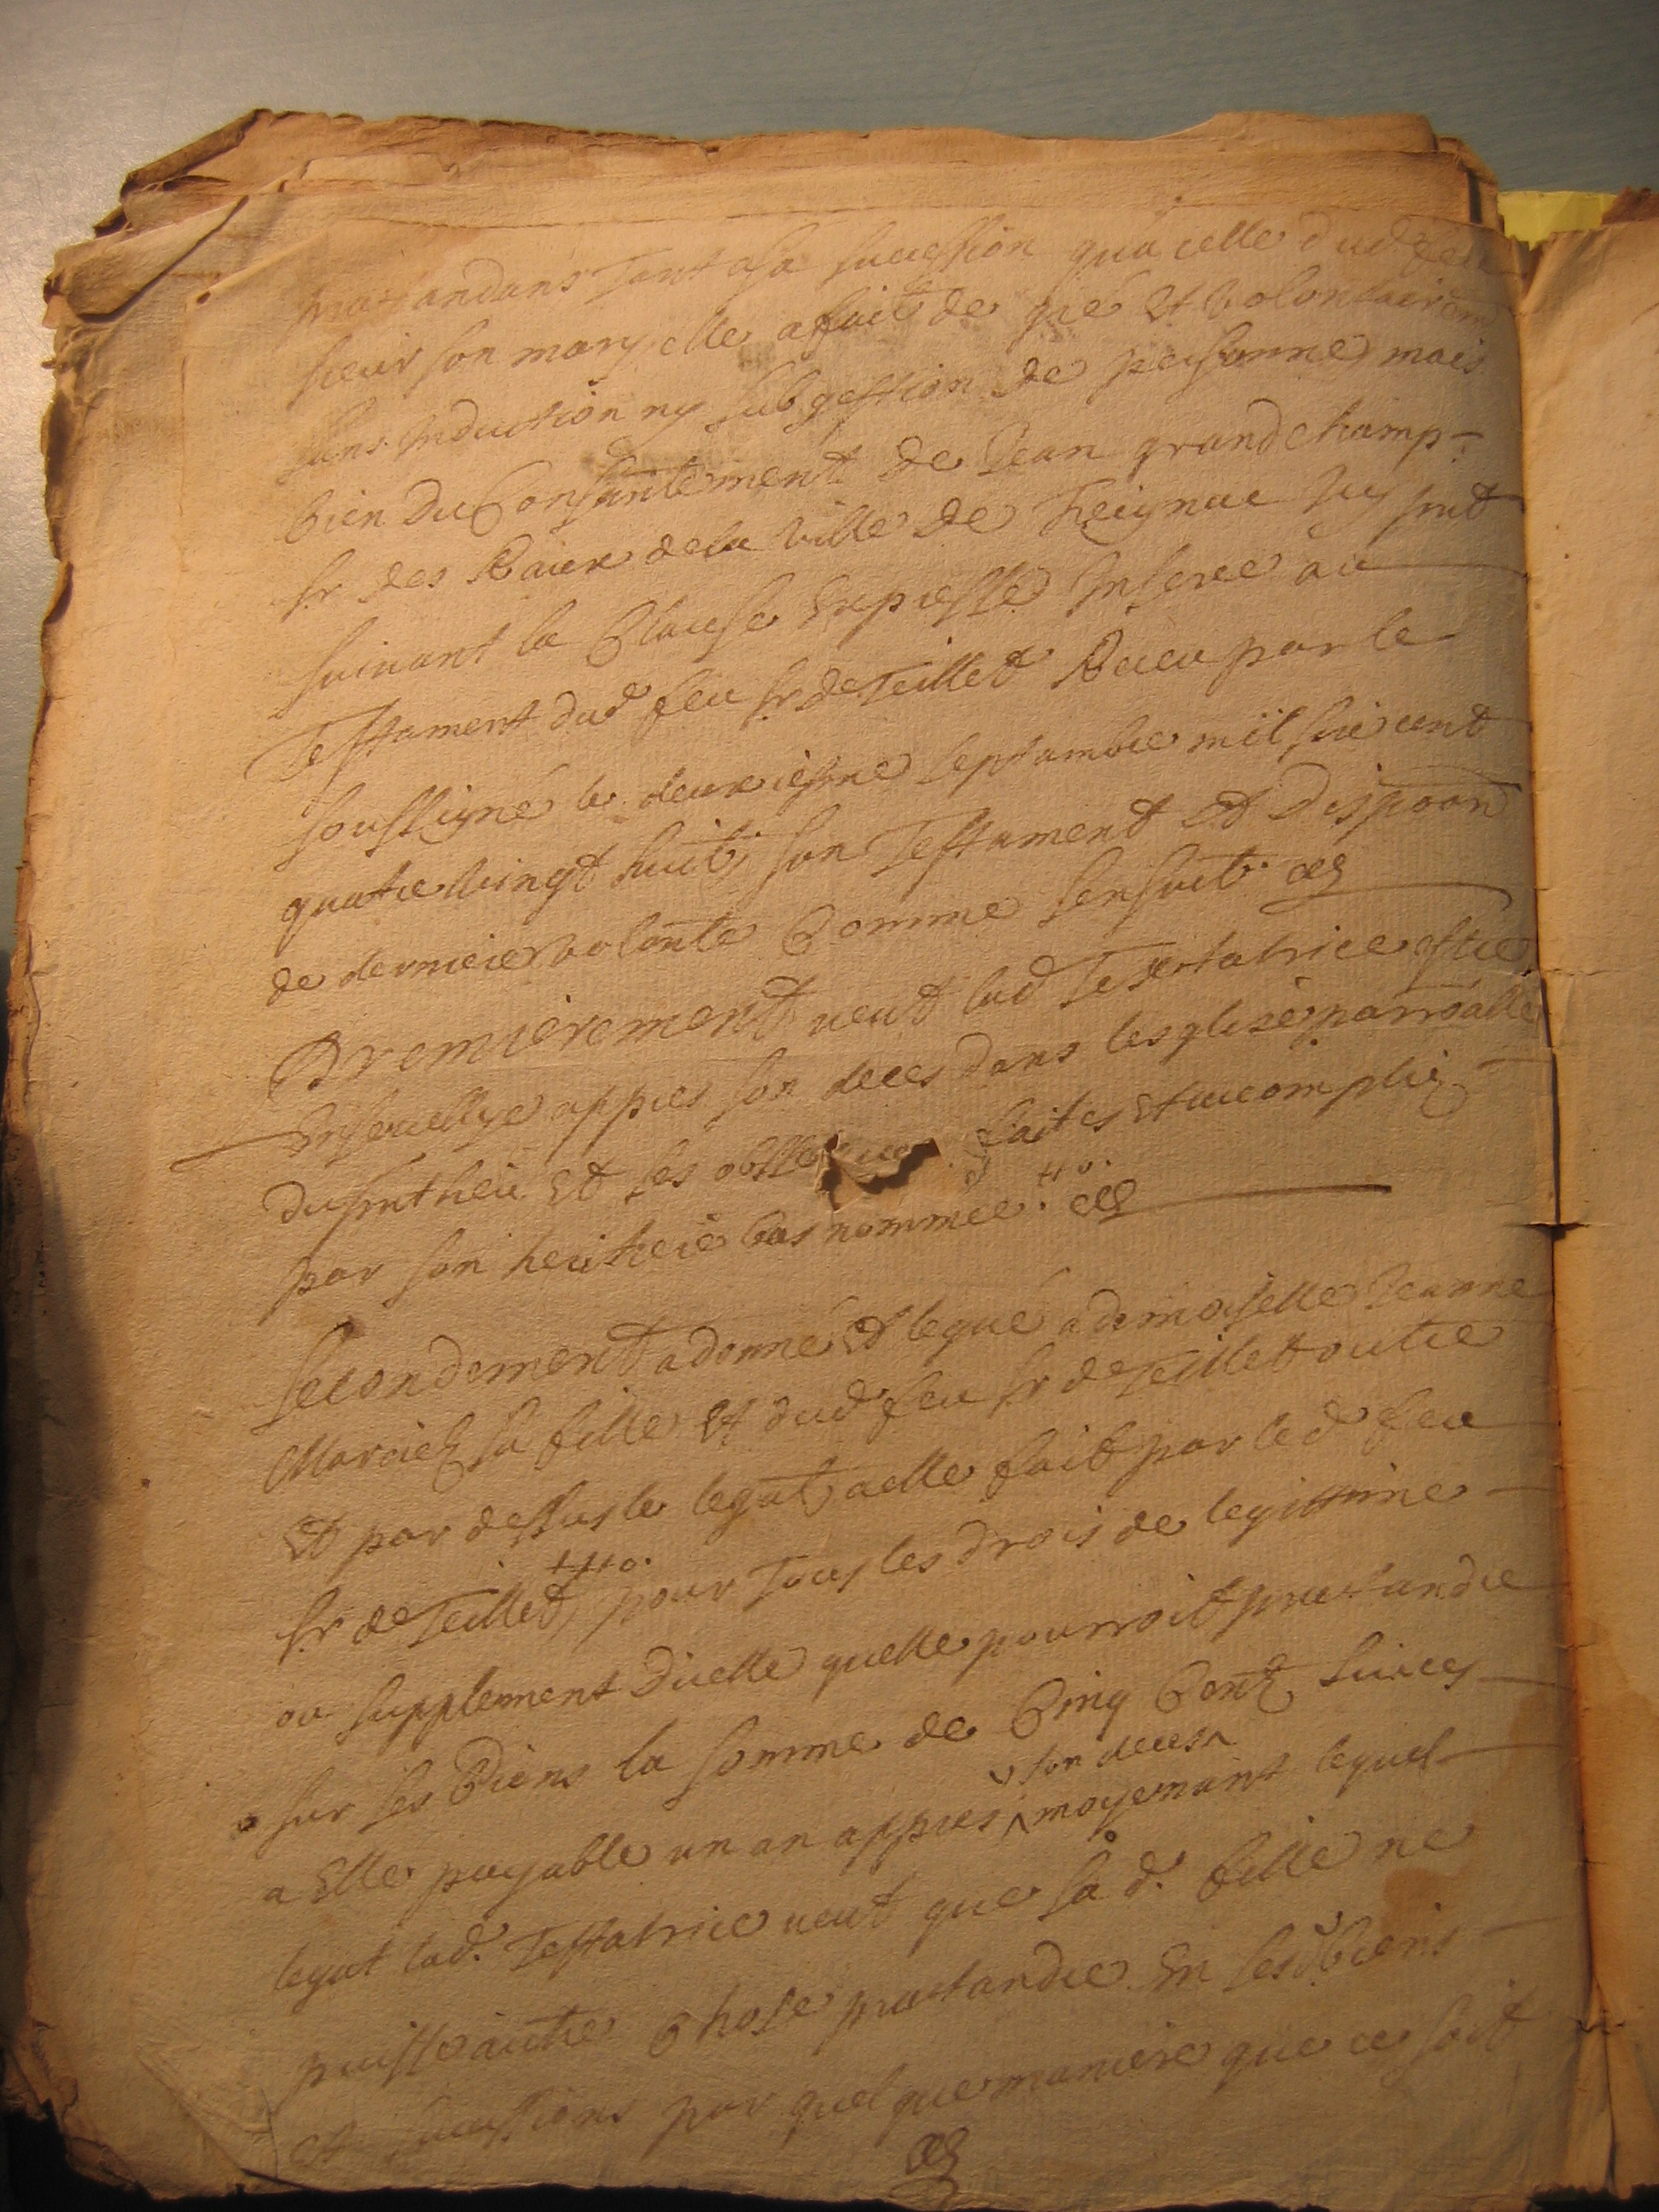 tant asa sucession qua icelle dud feu
sieur son mary elle a fait de gré Et volontairemt
sans Induction ny subgestion de personne mais
bien du Consantement de Jean grandchamp
sr des Raux dela ville de Treignac Icy pnt
suivant la Clause Expresse Inseree au
Testament dud feu sr de Teillet Receu par le
soussigné le deuxiesme septambre mil six cent
quatre vingt huit, son Testament Et dispoon
de derniere volonte Comme sensuit
Premierement veut lad Testatrice estre
Ensevellye appres son deces dans lesglise parroalle
du pnt lieu Et ses obseques faites Et accomplies
par son heritiere bas nommée
Secondement a donné Et legué a demoiselle Jeanne
Marcielz sa fille Et dud feu sr de Teillet outre
Et par dessus le legat a elle fait par led feu
sr de Teillet, pour tous les drois de legittime
ou supplement dicelle quelle pourroit prætandre
sur ses Biens la somme de Cinq Centz livres
son deces
a Elle payable un an appres moyenant lequel
legat lad. Testatrice veut que sad. fille ne
puisse autre Chose prætandre En sesd biens
et sucessions par quelque maniere que ce soit